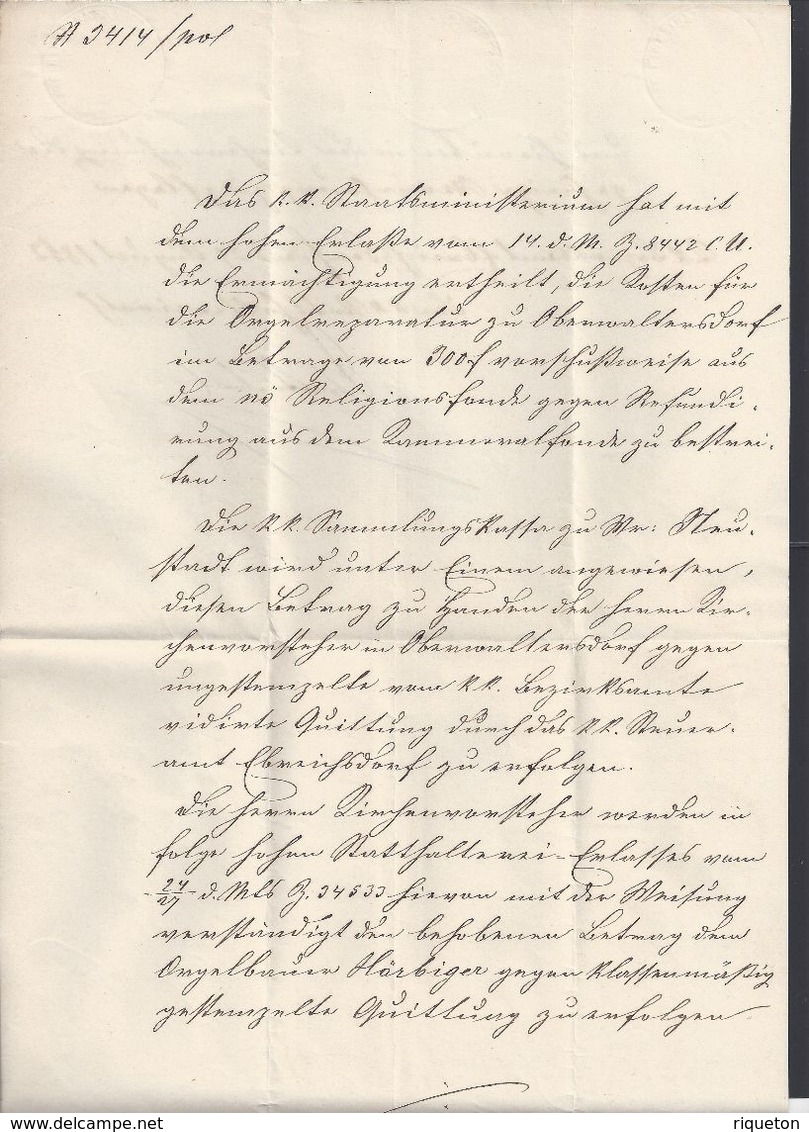 N 3414/pol
Das k.k. Staatsministerium hat mit
dem hohen Erlaße vom 14. d. M. Z. 8442 C. U.
die Ermächtigung ertheilt, die Kosten für
die Orgelreparatur zu Oberwaltersdorf
im Betrage von 300f vorschußweise aus
dem nö Religionsfonde gegen Refundi-
rung aus dem Kammeralfonde zu bestrei-
ten.
Die k.k. Sammlungskassa zu Wr: Neu-
stadt wird unter Einem angewiesen,
diesen Betrag zu Handen der Herrn Kir-
chenvorsteher in Oberwaltersdorf gegen
ungestempelte vom k.k. Bezirksamte
vidirte Quittung durch das k.k. Steuer-
amt Ebreichsdorf zu erfolgen.
Die Herrn Kirchenvorsteher werden in
folge hohen Statthalterei-Erlasses vom
24/27 d. Mts Z. 34533 hievon mit der Weisung
verständigt den behobenen Betrag dem
Orgelbauer Hörbiger gegen klassenmäßig
gestempelte Quittung zu erfolgen
riqueton